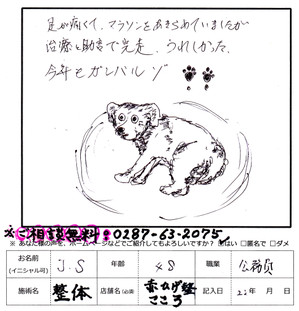 足が痛くて、マラソンをあきらめていましたが
治療と助言で完走、うれしかった。
今年もガンバルゾ
※ご相談無料：0287-63-2075
※あなた様の声を、ホームページなどでご紹介してもよろしいですか？ ☑はい □匿名で □ダメ
お名前 (イニシャル可) J.S 年齢 48 職業 公務員
施術名 整体 店舗名(必須) 赤ひげ堂 こころ 記入日 22年 月 日